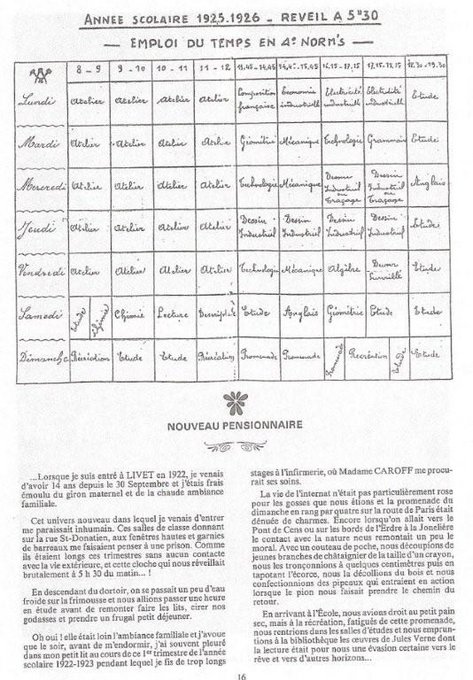 ANNÉE SCOLAIRE 1925.1926 _ REVEIL A 5H30
— EMPLOI DU TEMPS EN 4e NORM'S —
8 - 9 9 - 10 10 - 11 11 - 12 13.45-14.45 14.45-15.45 16.15-17.15 17.15-18.15 18.30-19.30
Lundi Atelier Atelier Atelier Atelier Composition française Economie industrielle Electricité industrielle Electricité industrielle Etude
Mardi Atelier Atelier Atelier Atelier Géométrie Mécanique Technologie Grammaire Etude
Mercredi Atelier Atelier Atelier Atelier Technologie Mécanique Dessin Industriel ou Traçage Dessin Industriel ou Traçage Anglais
Jeudi Atelier Atelier Atelier Atelier Dessin Industriel Dessin Industriel Dessin Industriel Dessin Industriel Etude
Vendredi Atelier Atelier Atelier Atelier Technologie Mécanique Algèbre Etude
Samedi Etude Chimie Chimie Lecture Etude Anglais Géométrie Etude Etude
Dimanche Récréation Etude Etude Récréation Promenade Promenade Promenade Récréation Etude Etude
NOUVEAU PENSIONNAIRE
...Lorsque je suis entré à LIVET en 1922, je venais
d'avoir 14 ans depuis le 30 Septembre et j'étais frais
émoulu du giron maternel et de la chaude ambiance
familiale.
Cet univers nouveau dans lequel je venais d'entrer
me paraissait inhumain. Ces salles de classe donnant
sur la rue St-Donatien, aux fenêtres hautes et garnies
de barreaux me faisaient penser à une prison. Comme
ils étaient longs ces trimestres sans aucun contacte
avec la vie extérieure, et cette cloche qui nous réveillait
brutalement à 5 h 30 du matin... !
En descendant du dortoir, on se passait un peu d'eau
froide sur la frimousse et nous allions passer une heure
en étude avant de remonter faire les lits, cirer nos
godasses et prendre un frugal petit déjeuner.
Oh oui ! elle était loin l'ambiance familiale et j'avoue
que le soir, avant de m'endormir, j'ai souvent pleuré
dans mon petit lit au cours de ce 1er trimestre de l'année
scolaire 1922-1923 pendant lequel je fis de trop longs
stages à l'infirmerie, où Madame CAROFF me procu-
rait ses soins.
La vie de l'internat n'était pas particulièrement rose
pour les gosses que nous étions et la promenade du
dimanche en rang par quatre sur la route de Paris était
dénuée de charmes. Encore lorsqu'on allait vers le
Pont de Cens ou sur les bords de l'Erdre à la Jonelière
le contact avec la nature nous remontait un peu le
moral. Avec un couteau de poche, nous découpions de
jeunes branches de châtaignier de la taille d'un crayon,
nous les tronçonnions à quelques centimètres puis en
tapotant l'écorce, nous la décollions du bois et nous
confectionnions des pipeaux qui entraient en action
lorsque le pion nous faisait prendre le chemin du
retour.
En arrivant à l'École, nous avions droit au petit pain
sec, mais à la récréation, fatigués de cette promenade,
nous rentrions dans les salles d'études et nous emprun-
tions à la bibliothèque les œuvres de Jules Verne dont
la lecture était pour nous une évasion certaine vers le
rêve et vers d'autres horizons...
16